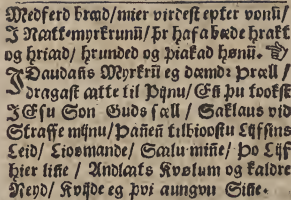 Medferd bræd/ mier virdest epter vonū/
I Nætt-myrkrunū/ þr hafa bæde hrakt
og hriæd/ hrunded og þiakad hønū. ☞
I Daudans Myrkrū eg dæmdr þræll/
dragast ætte til Pijnu/ Eñ þu tookst
IEsu Son Guds sæll/ Saklaus vid
Straffe mijnu/ Pañeñ tilbioostu Lijfsins
Leid/ Liosmande/ Sælu miñe/ Þo Lijf
hier liñe/ Andlæts Kvølum og kaldre
Neyd/ Kvijde eg þvi aungvu Siñe.